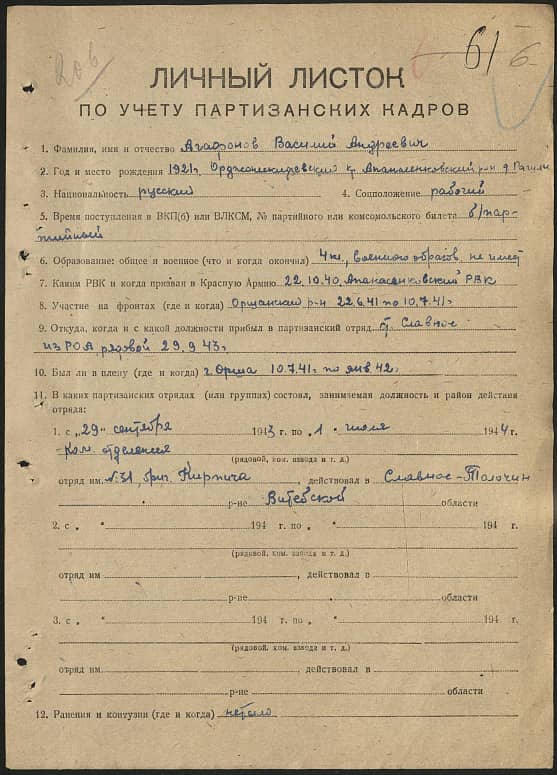 206
61 6
ЛИЧНЫЙ ЛИСТОК
ПО УЧЕТУ ПАРТИЗАНСКИХ КАДРОВ
1. Фамилия, имя и отчество Агафонов Василий Андреевич
2. Год и место рождения 1921 г. Орджоникидзевский кр. Апанасенковский р-н д.
3. Национальность русский 4. Соцположение рабочий
5. Время поступления в ВКП(б) или ВЛКСМ, № партийного или комсомольского билета б/пар-
тийный
6. Образование: общее и военное (что и когда окончил) 4 кл., военного образов. не имеет
7. Каким РВК и когда призван в Красную Армию 22.10.40. Апанасенковский РВК
8. Участие на фронтах (где и когда) Оршанский р-н 22.6.41 по 10.7.41 г.
9. Откуда, когда и с какой должности прибыл в партизанский отряд ст. Славное
из РОА, рядовой 29.9.43 г.
10. Был ли в плену (где и когда) г. Орша 10.7.41 г. по янв. 42 г.
11. В каких партизанских отрядах (или группах) состоял, занимаемая должность и район действия
отряда:
1. с „29" сентября 1943 г. по „1 " июля 1944 г.
ком. отделения
(рядовой, ком. взвода и т. д.)
отряд им. №31, бриг. Кирпича, действовал в Славное-Толочин
р-не Витебской области
2. с „ " 194 г. по „ " 194 г.
(рядовой, ком. взвода и т. д.)
отряд им , действовал в
р-не области
3. с „ " 194 г. по „ " 194 г.
(рядовой, ком. взвода и т. д.)
отряд им. , действовал в
р-не области
12. Ранения и контузии (где и когда) не было